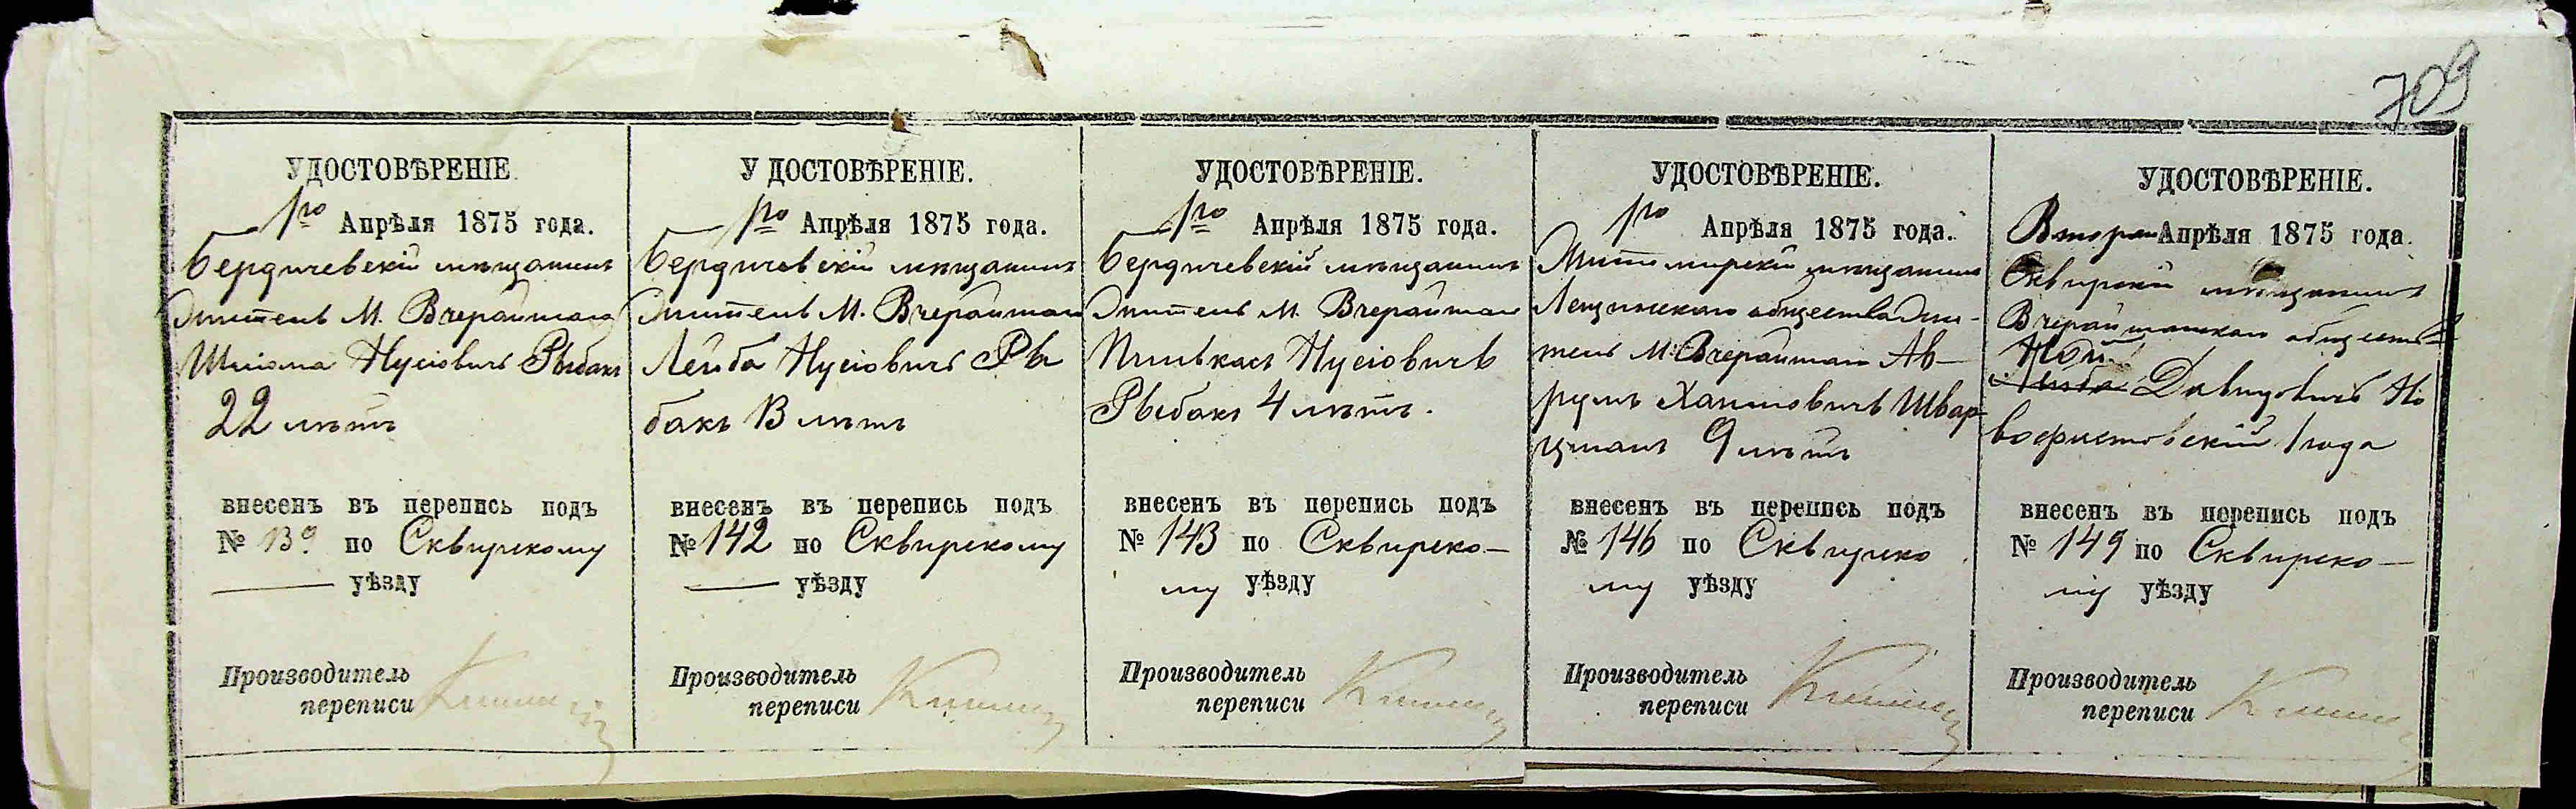 709
УДОСТОВѢРЕНІЕ.
1го Апрѣля 1875 года.
Бердичевскій мѣщанинъ
житель М. Вчерайшаго
Шліома Нусіовичъ Рыбакъ
22 лѣтъ
внесенъ въ перепись подъ
№ 139 по Сквирскому
уѣзду
Производитель
переписи
УДОСТОВѢРЕНІЕ.
1го Апрѣля 1875 года.
Бердичевскій мѣщанинъ
житель М. Вчерайшаго
Лейба Нусіовичъ Ры
бакъ 13 лѣтъ
внесенъ въ перепись подъ
№ 142 по Сквирскому
уѣзду
Производитель
переписи
УДОСТОВѢРЕНІЕ.
1го Апрѣля 1875 года.
Бердичевскій мѣщанинъ
житель М. Вчерайшаго
Пинькасъ Нусіовичъ
Рыбакъ 4 лѣтъ.
внесенъ въ перепись подъ
№ 143 по Сквирско-
му уѣзду
Производитель
переписи
УДОСТОВѢРЕНІЕ.
1го Апрѣля 1875 года.
Житомирскій мѣщанинъ
Лещинскаго общества жи-
тель М. Вчерайшаго Ав-
румъ Хаимовичъ Швар-
цманъ 9 лѣтъ
внесенъ въ перепись подъ
№ 146 по Сквирско
му уѣзду
Производитель
переписи
УДОСТОВѢРЕНІЕ.
Апрѣля 1875 года.
Сквирскій мѣщанинъ
Вчерайшанскаго общества
Давидовичъ Но
1 года
внесенъ въ перепись подъ
№ 149 по Сквирско-
му уѣзду
Производитель
переписи